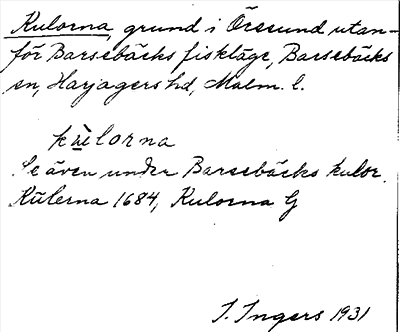 Kulorna, grund i Öresund utan-
för Barsebäcks fiskläge, Barsebäcks
sn, Harjagers hd, Malm. l.
kùlorna
Se även under Barsebäcks kulor.
Kulerna 1684, Kulorna G
I. Ingers 1931